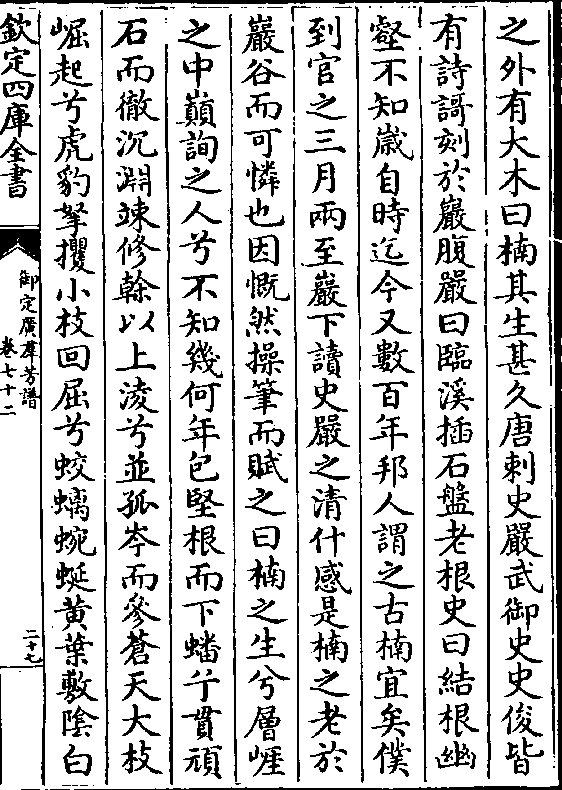 之外有大木曰楠其生甚久唐刺史嚴武御史史俊皆
有詩謌刻於巖腹嚴曰臨溪插石盤老根史曰結根幽
壑不知歳自時迄今又數百年邦人謂之古楠宜矣僕
到官之三月兩至巖下讀史嚴之清什感是楠之老於
巖谷而可憐也因慨然操筆而賦之曰楠之生兮層崕
之中巔詢之人兮不知幾何年包堅根而下蟠兮貫頑
石而徹沉淵竦修榦以上淩兮並孤岑而參蒼天大枝
崛起兮虎豹拏攫小枝回屈兮蛟螭蜿蜒黄葉敷陰白
欽定四庫全書
御定廣羣芳譜
卷七十二
二十七